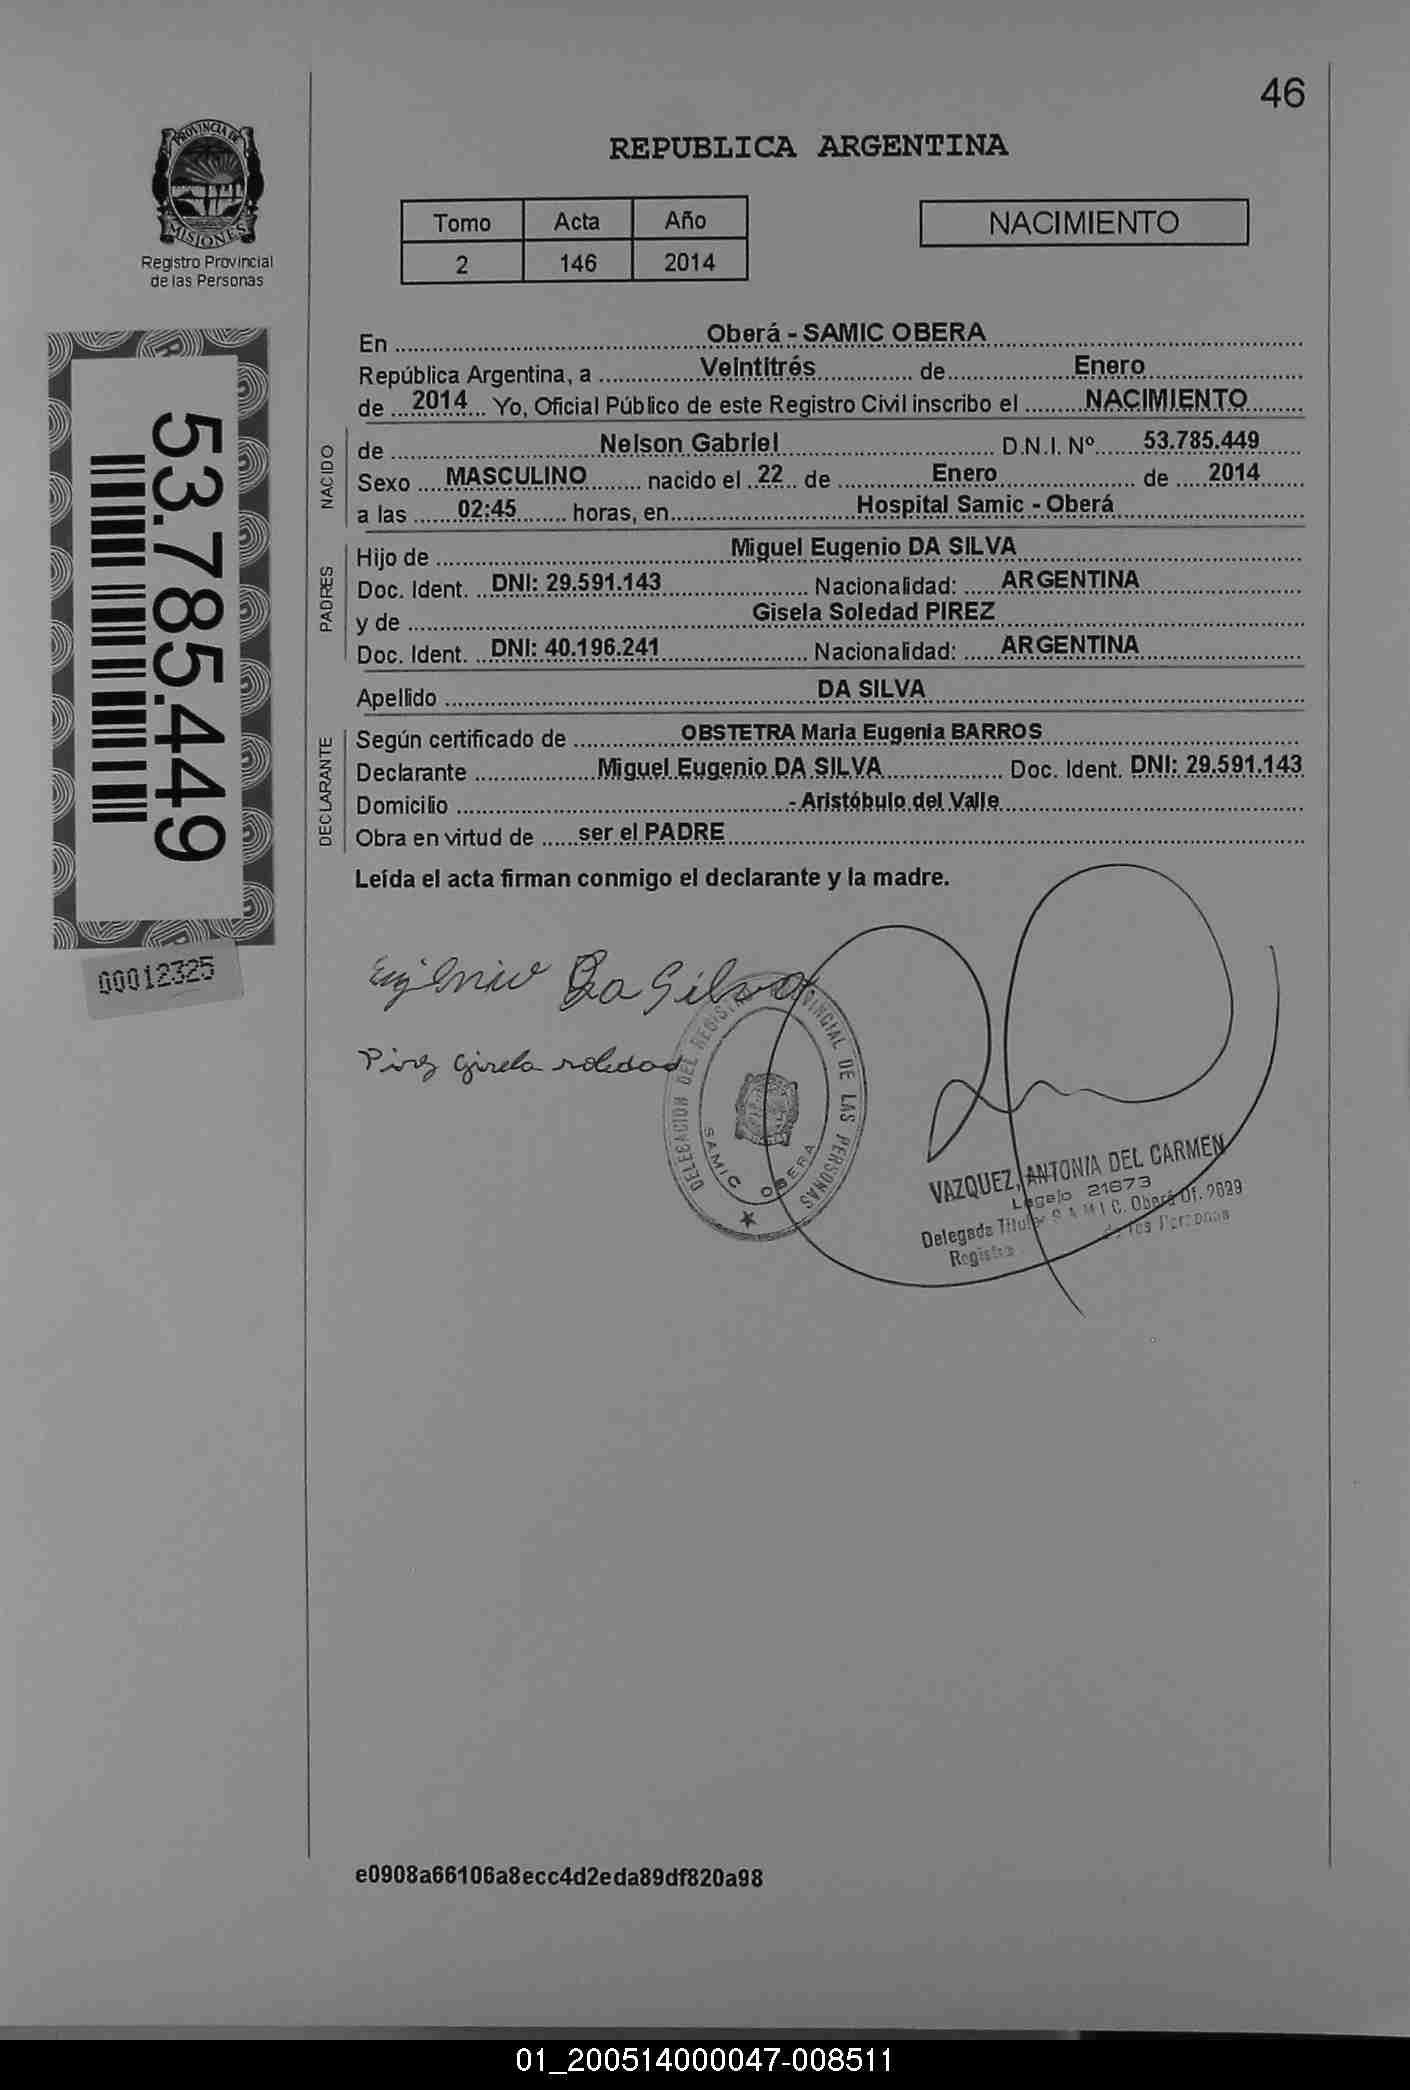 46
PROVINCIA DE
MISIONES
Registro Provincial
de las Personas
REPUBLICA ARGENTINA
Tomo Acta Año
2 146 2014
NACIMIENTO
53.785.449
00012325
En Oberá - SAMIC OBERA
República Argentina, a Veintitrés de Enero
de 2014 Yo, Oficial Público de este Registro Civil inscribo el NACIMIENTO
NACIDO
de Nelson Gabriel D.N.I. Nº 53.785.449
Sexo MASCULINO nacido el 22 de Enero de 2014
a las 02:45 horas, en Hospital Samic - Oberá
PADRES
Hijo de Miguel Eugenio DA SILVA
Doc. Ident. DNI: 29.591.143 Nacionalidad: ARGENTINA
y de Gisela Soledad PIREZ
Doc. Ident. DNI: 40.196.241 Nacionalidad: ARGENTINA
Apellido DA SILVA
DECLARANTE
Según certificado de OBSTETRA María Eugenia BARROS
Declarante Miguel Eugenio DA SILVA Doc. Ident. DNI: 29.591.143
Domicilio - Aristóbulo del Valle
Obra en virtud de ser el PADRE
Leída el acta firman conmigo el declarante y la madre.
Eugenio Da Silva
Pirez Gisela soledad
DELEGACION DEL REGISTRO PROVINCIAL DE LAS PERSONAS
SAMIC OBERA
VAZQUEZ, ANTONIA DEL CARMEN
Legajo 21673
Delegada Titular S.A.M.I.C. Oberá Of. 2629
Registro de las Personas
e0908a66106a8ecc4d2eda89df820a98
01_200514000047-008511